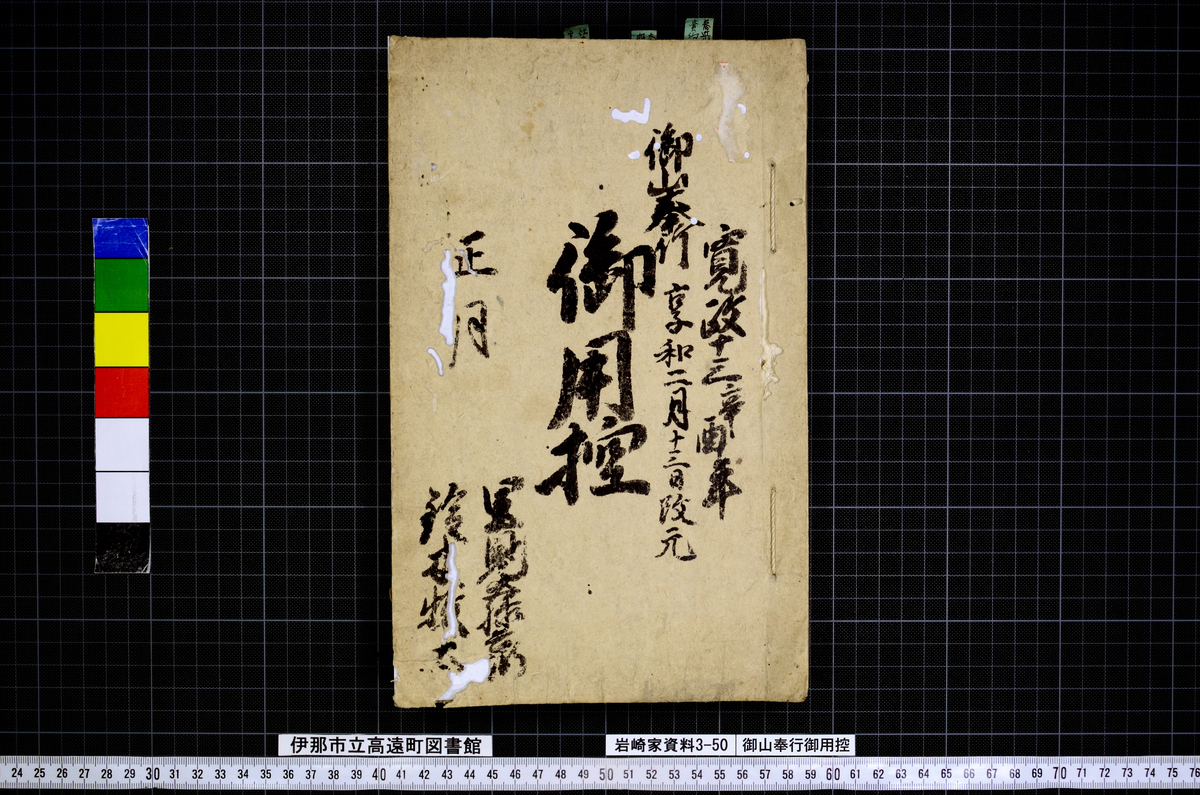 寛政十三辛酉年
享和二月十三日改元
御山奉行
御用控
正月
伊那市立高遠町図書館
岩崎家資料3-50
御山奉行御用控
24 25 26 27 28 29 30 31 32 33 34 35 36 37 38 39 40 41 42 43 44 45 46 47 48 49 50 51 52 53 54 55 56 57 58 59 60 61 62 63 64 65 66 67 68 69 70 71 72 73 74 75 76